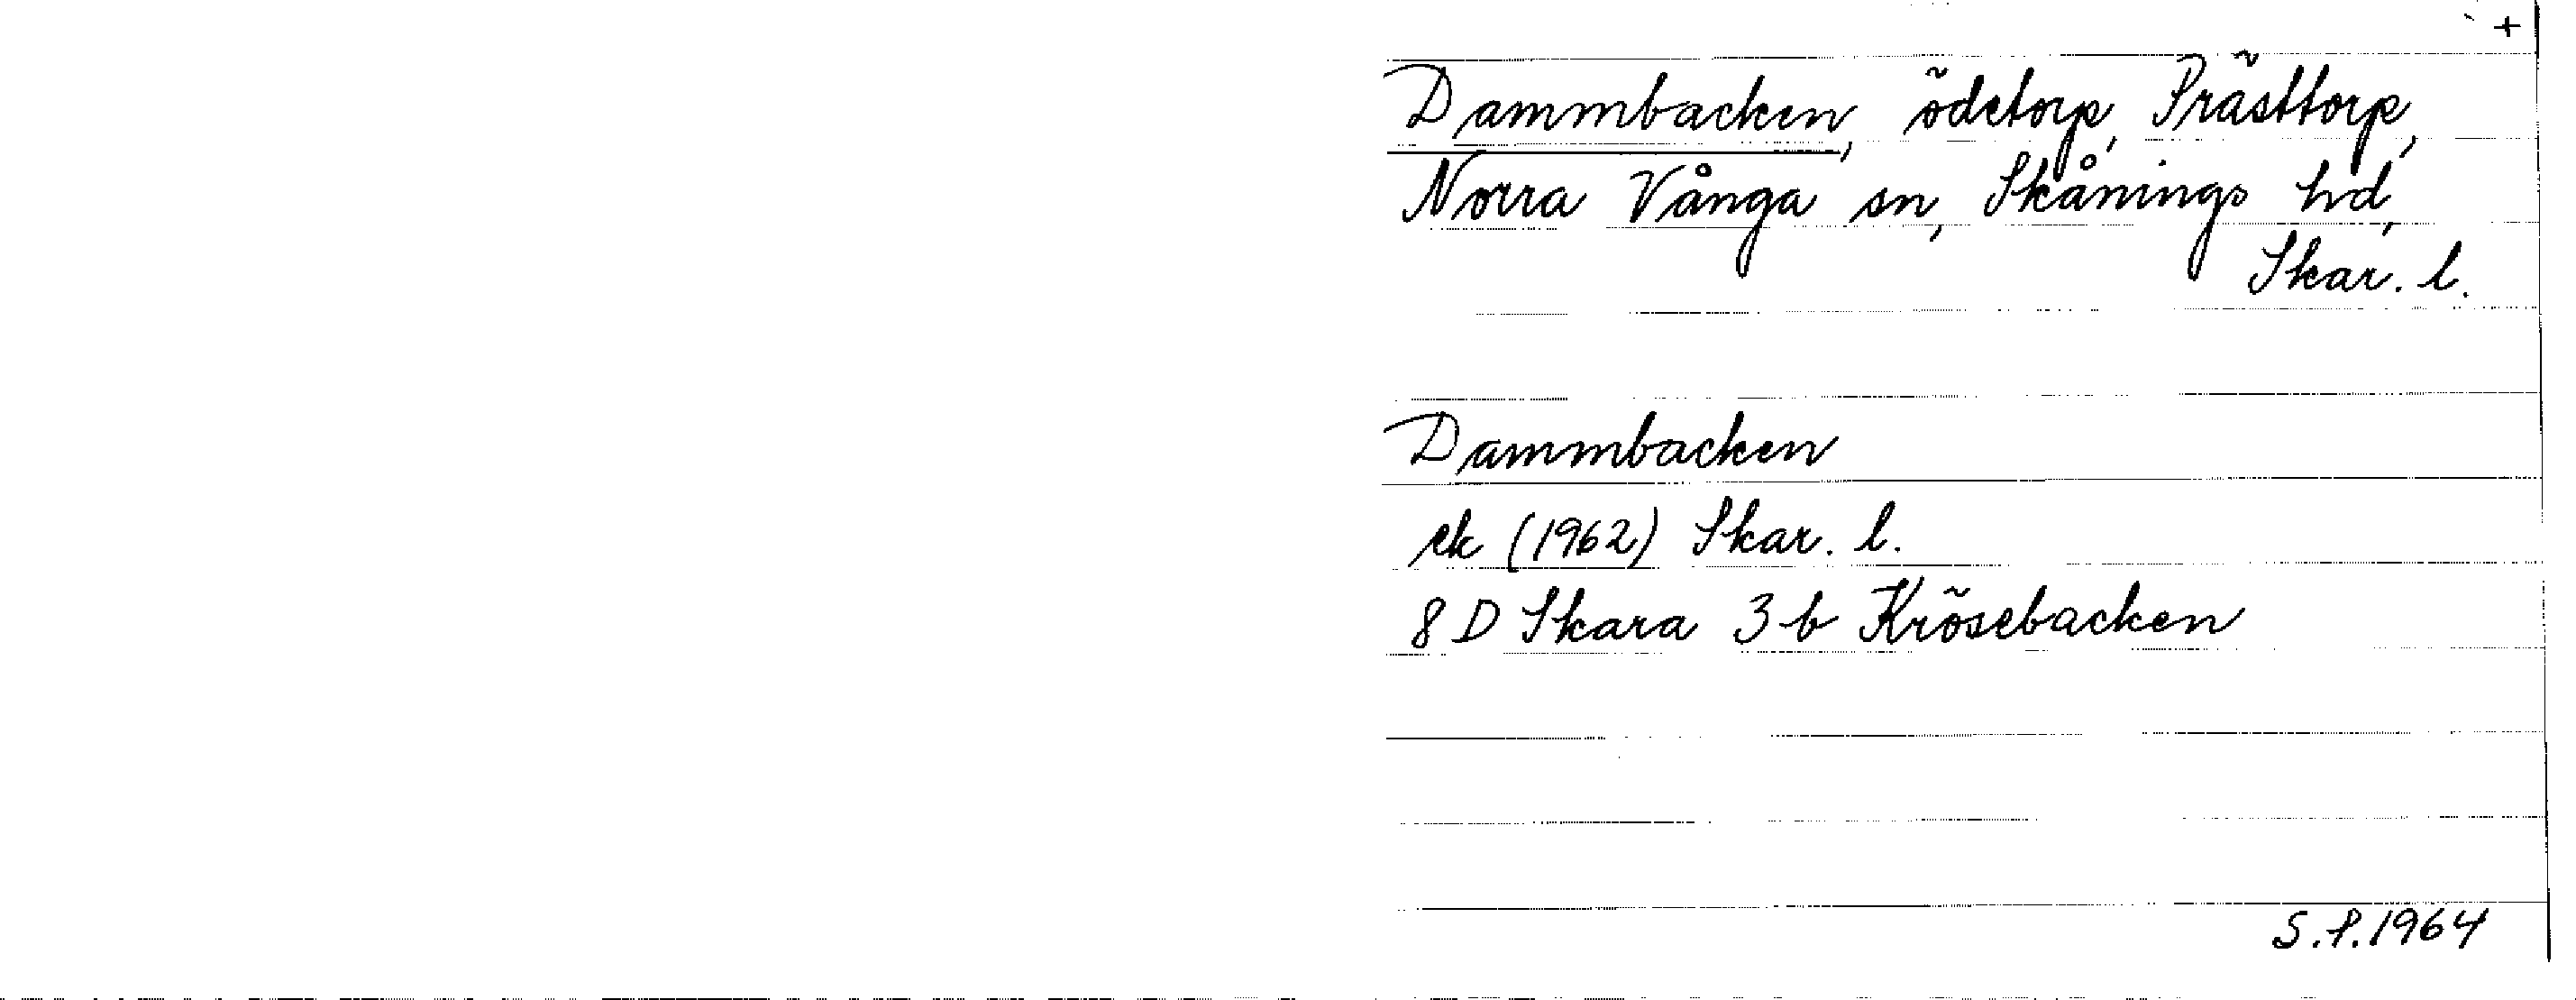 +
Dammbacken, ödetorp, Prästtorp,
Norra Vånga sn, Skånings hd,
Skar. l.
Dammbacken
ek (1962) Skar. l.
8 D Skara 3 b Krösebacken
S.P.1964